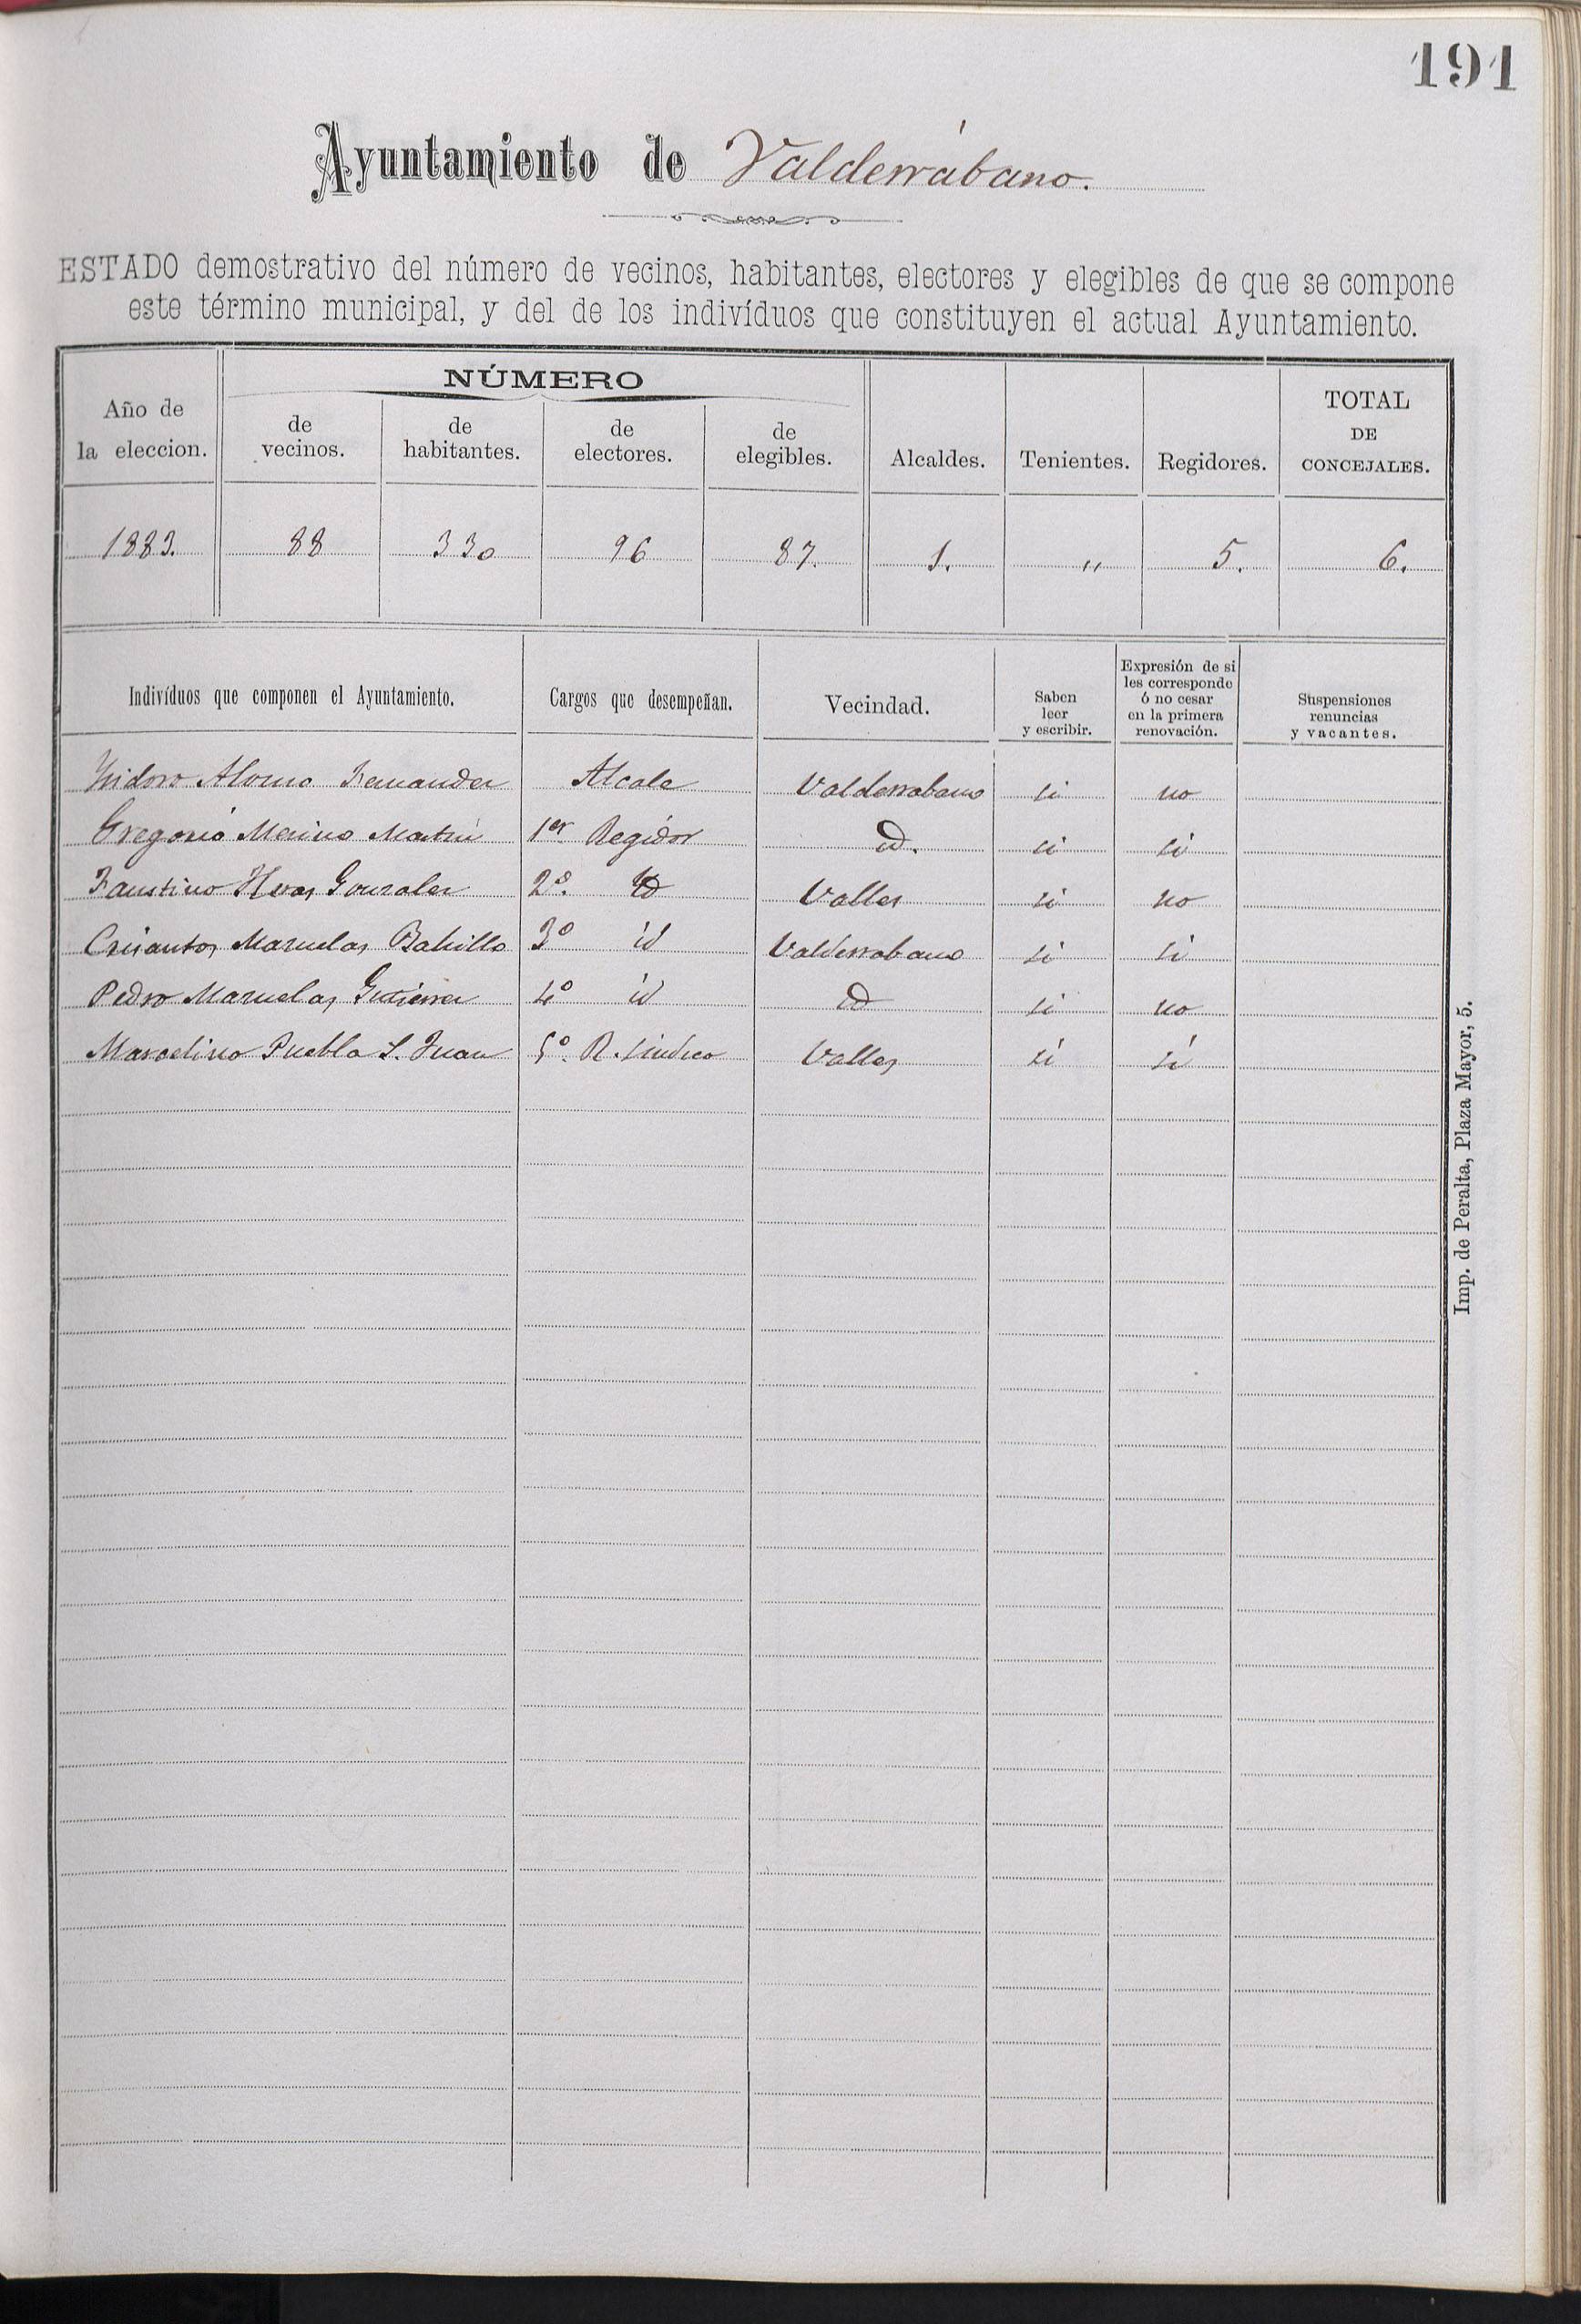 191
Ayuntamiento de Valderrábano.
ESTADO demostrativo del número de vecinos, habitantes, electores y elegibles de que se compone
este término municipal, y del de los indivíduos que constituyen el actual Ayuntamiento.
Año de la eleccion. NÚMERO de vecinos. de habitantes. de electores. de elegibles. Alcaldes. Tenientes. Regidores. TOTAL DE CONCEJALES.
1883. 88 330 96 87. 1. " 5. 6.
Indivíduos que componen el Ayuntamiento. Cargos que desempeñan. Vecindad. Saben leer y escribir. Expresión de si les corresponde ó no cesar en la primera renovación. Suspensiones renuncias y vacantes.
Ysidoro Alonso Fernandez Alcale Valderrabano si no
Gregorio Merino Martin 1er Regidor id. si si
Faustino Heras Gonzalez 2º. id Valles si no
Crisantos Mazuelas Bahillo 3º id Valderrabano si si
Pedro Mazuelas Gutierrez 4º id id si no
Marcelino Puebla S. Juan 5º. R. sindico Valles sí sí
Imp. de Peralta, Plaza Mayor, 5.